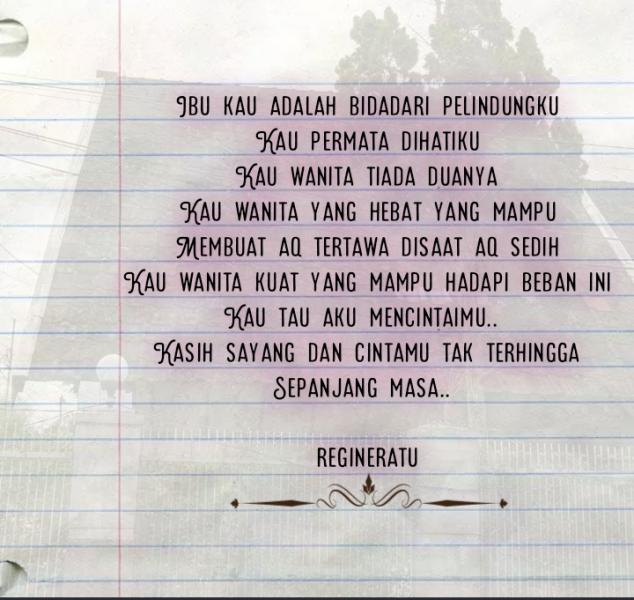 Ibu kau adalah bidadari pelindungku
Kau permata dihatiku
Kau wanita tiada duanya
Kau wanita yang hebat yang mampu
Membuat aq tertawa disaat aq sedih
Kau wanita kuat yang mampu hadapi beban ini
Kau tau aku mencintaimu..
Kasih sayang dan cintamu tak terhingga
Sepanjang masa..
regineratu